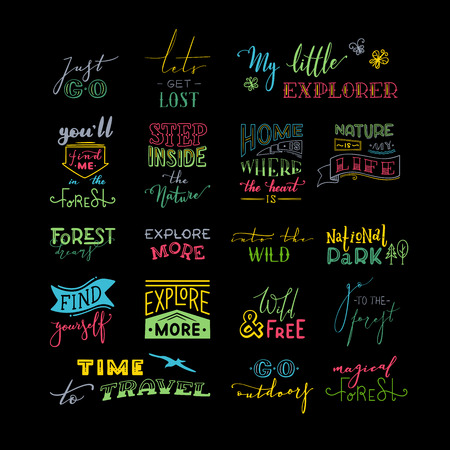 Just
GO
lets
GET
LOST
My little
EXPLORER
you'll
find
ME
in the
FOREST
STEP
INSIDE
the
Nature
HOME
IS
WHERE
the heart
IS
NATURE
IS MY
LIFE
FOREST
dreams
EXPLORE
MORE
into the
WILD
NATIONAL
PARK
FIND
yourself
EXPLORE
MORE
Wild
& FREE
go
TO THE
forest
TIME
to TRAVEL
GO
outdoors
magical
FOREST